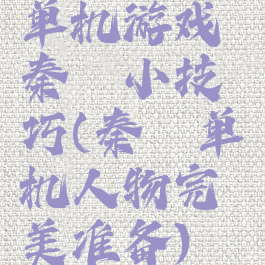 单机游戏
秦 小技
巧(秦 单
机人物完
美准备)